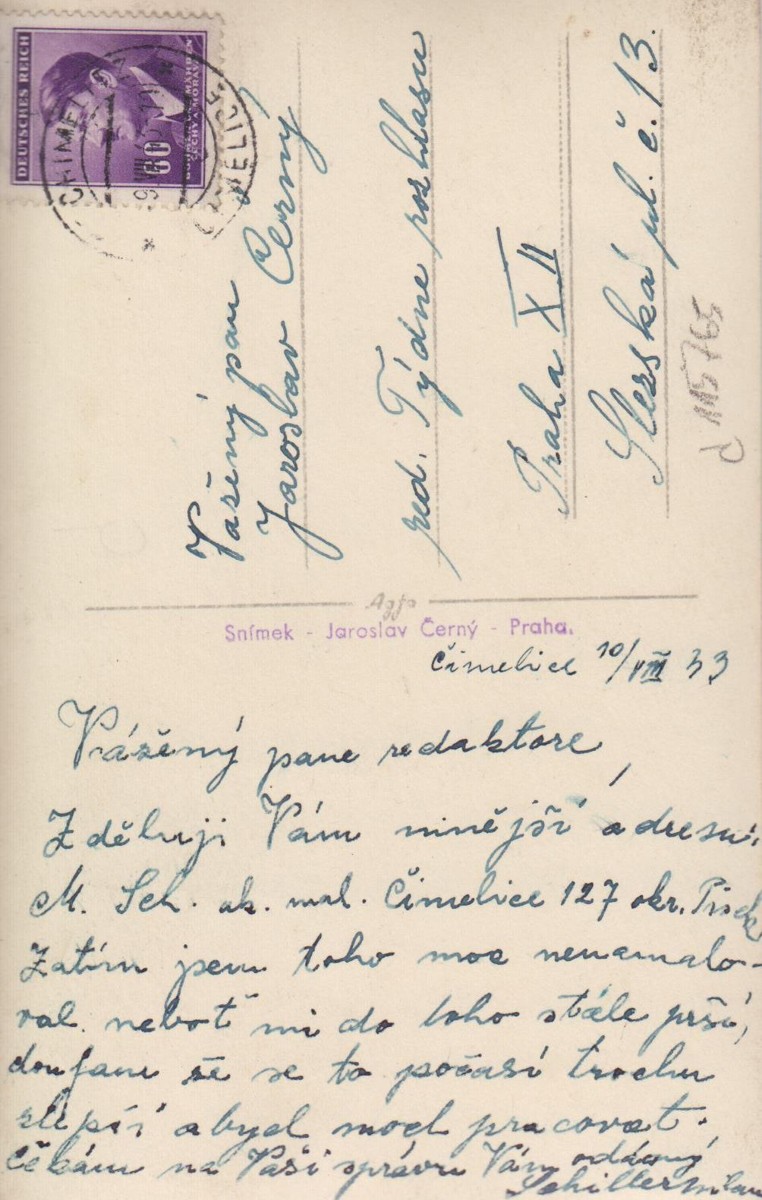 DEUTSCHES REICH
BÖHMEN UND MÄHREN
ČECHY A MORAVA
60
ČIMELICE
Vážený pan
Jaroslav Černý
red. Týdne rozhlasu
Praha XII
Slezská ul. č. 13.
d 115765
Agfa
Snímek - Jaroslav Černý - Praha.
Čimelice 10/VIII 43
Vážený pane redaktore,
Zděluji Vám ninější adresu:
M. Sch. ak. mal. Čimelice 127 okr. Písek
Zatím jsem toho moc nenamalo-
val neboť mi do toho stále prší,
doufam že se to počasí trochu
zlepší abych mocl pracovat.
Čěkám na Vaši správu Vám oddaný
Schiller Milan